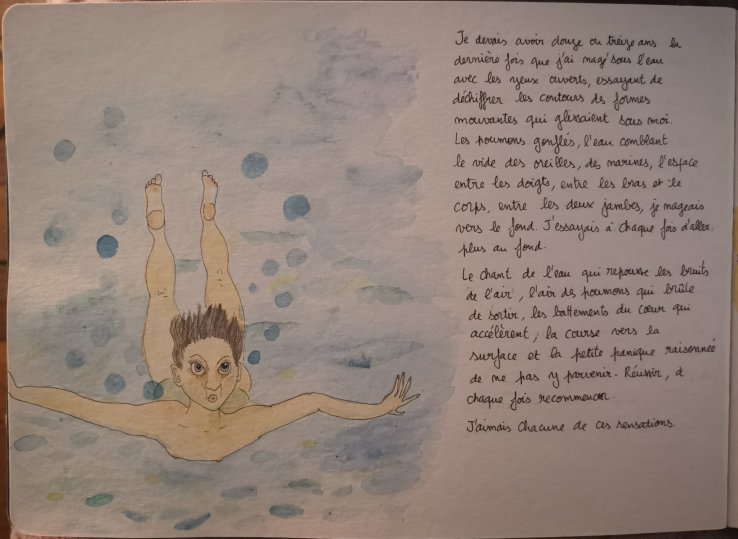 Je devais avoir douze ou treize ans la
dernière fois que j'ai nagé sous l'eau
avec les yeux ouverts, essayant de
déchiffrer les contours des formes
mouvantes qui glissaient sous moi.
Les poumons gonflés, l'eau comblant
le vide des oreilles, des narines, l'espace
entre les doigts, entre les bras et le
corps, entre les deux jambes, je nageais
vers le fond. J'essayais à chaque fois d'aller
plus au fond.
Le chant de l'eau qui repousse les bruits
de l'air, l'air des poumons qui brûle
de sortir, les battements du cœur qui
accélèrent, la course vers la
surface et la petite panique raisonnée
de ne pas y parvenir. Réussir, à
chaque fois recommencer.
J'aimais chacune de ces sensations.